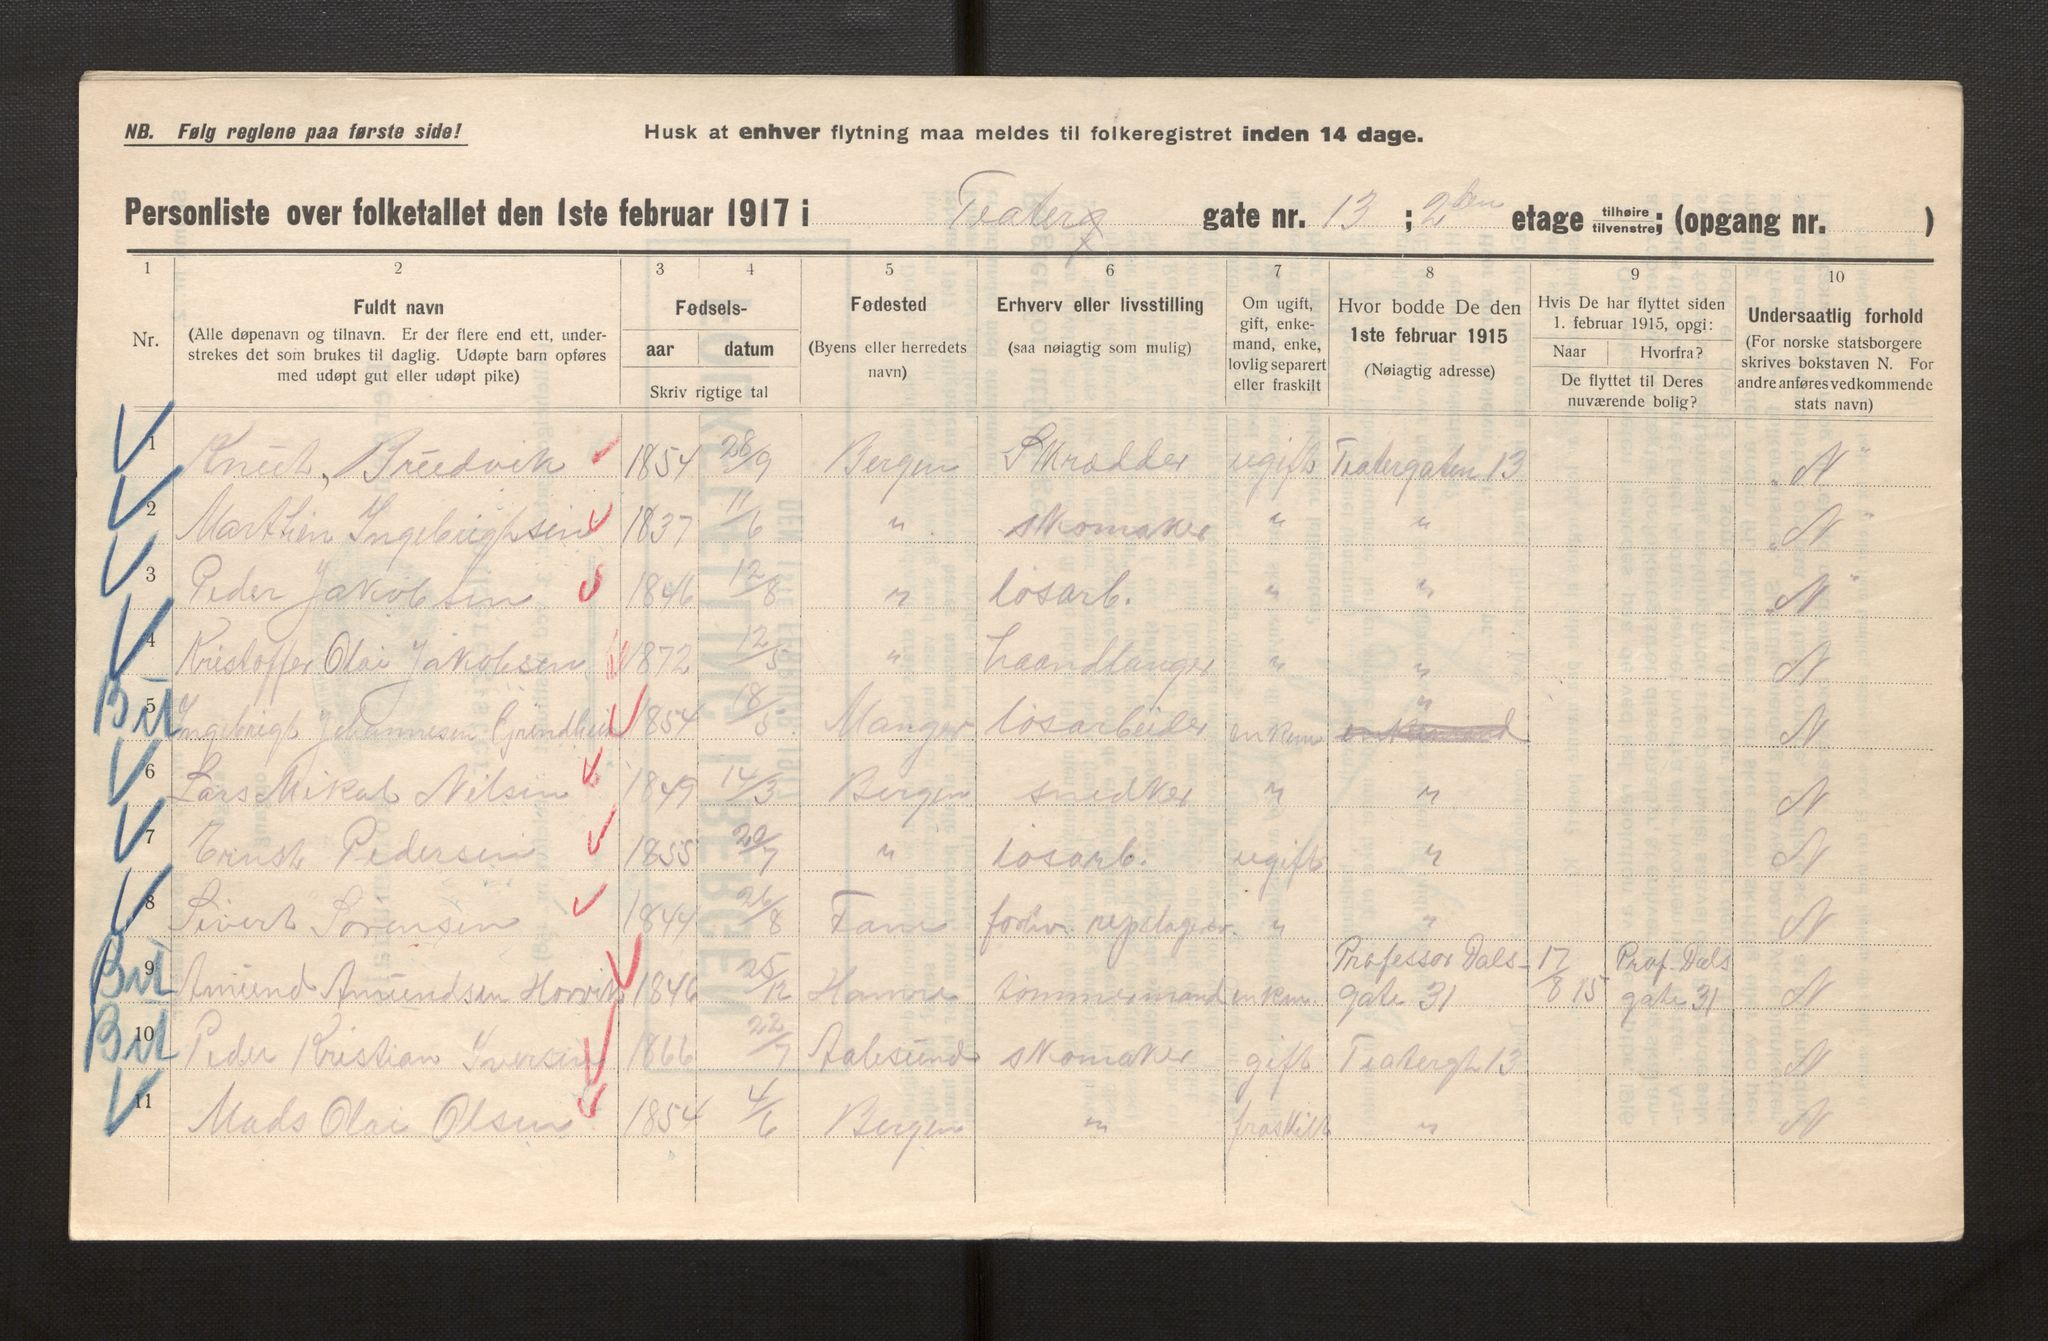 NB. Følg reglene paa første side!
Husk at enhver flytning maa meldes til folkeregistret inden 14 dage.
Personliste over folketallet den 1ste februar 1917 i Teaterg gate nr. 13 ; 2den etage tilhøire / tilvenstre; (opgang nr. )
1 2 3 4 5 6 7 8 9 10
Nr.
Fuldt navn
(Alle døpenavn og tilnavn. Er der flere end ett, under-
strekes det som brukes til daglig. Udøpte barn opføres
med udøpt gut eller udøpt pike)
Fødsels-
aar datum
Skriv rigtige tal
Fødested
(Byens eller herredets
navn)
Erhverv eller livsstilling
(saa nøiagtig som mulig)
Om ugift,
gift, enke-
mand, enke,
lovlig separert
eller fraskilt
Hvor bodde De den
1ste februar 1915
(Nøiagtig adresse)
Hvis De har flyttet siden
1. februar 1915, opgi:
Naar Hvorfra?
De flyttet til Deres
nuværende bolig?
Undersaatlig forhold
(For norske statsborgere
skrives bokstaven N. For
andre anføres vedkommende
stats navn)
1 Knut Bredvik 1854 28/9 Bergen Skrædder ugift Teatergaten 13 „N“
2 Marthin Ingebrigtsen 1837 11/6 " skomaker " " „N“
3 Peder Jakobsen 1846 12/8 " løsarb. " " „N“
4 Kristoffer Olai Jakobsen 1872 12/5 " haandlanger " " N
Bil 5 Ingebrigt Johannesen Grindheim 1854 18/5 Manger løsarbeider enkem " N
6 Lars Mikal Nilsen 1849 14/3 Bergen snedker " " N
7 Ernst Pedersen 1855 22/7 " løsarb. ugift " N
8 Sivert Sørensen 1844 26/8 Fane forhv. repslager " " N
Bil 9 Amund Amundsen Horvik 1846 25/12 Hamre tømmermand enkem. Professor Dals- gate 31 17/8 15 Prof. Dals gate 31 N
Bil 10 Peder Kristian Iversen 1866 22/7 Aalesund skomaker gift Teatergt 13 N
11 Mads Olai Olsen 1854 4/6 Bergen " fraskilt " N